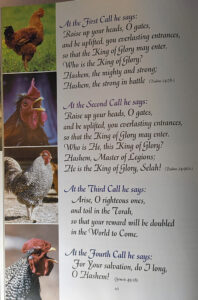 At the First Call he says:
Raise up your heads, O gates,
and be uplifted, you everlasting entrances,
so that the King of Glory may enter.
Who is the King of Glory?
Hashem, the mighty and strong;
Hashem, the strong in battle
At the Second Call he says:
Raise up your heads, O gates,
and be uplifted, you everlasting entrances,
so that the King of Glory may enter.
Who is He, this King of Glory?
Hashem, Master of Legions;
He is the King of Glory, Selah!
At the Third Call he says:
Arise, O righteous ones,
and toil in the Torah,
so that your reward will be doubled
in the World to Come.
At the Fourth Call he says:
For Your salvation, do I long,
O Hashem!